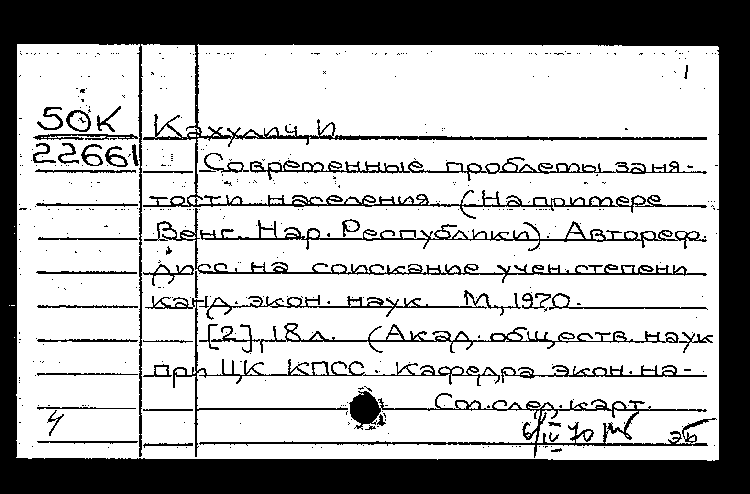 1
50К Кахулич, И
22661 Современные проблемы заня-
тости населения (На примере
Венг. Нар. Республики). Автореф.
дисс. на соискание учен. степени
канд. экон. наук. М., 1970.
[2], 18 л. (Акад. обществ. наук
при ЦК КПСС. Кафедра экон. на-
См. след. карт.
4 6/IV 70 эб